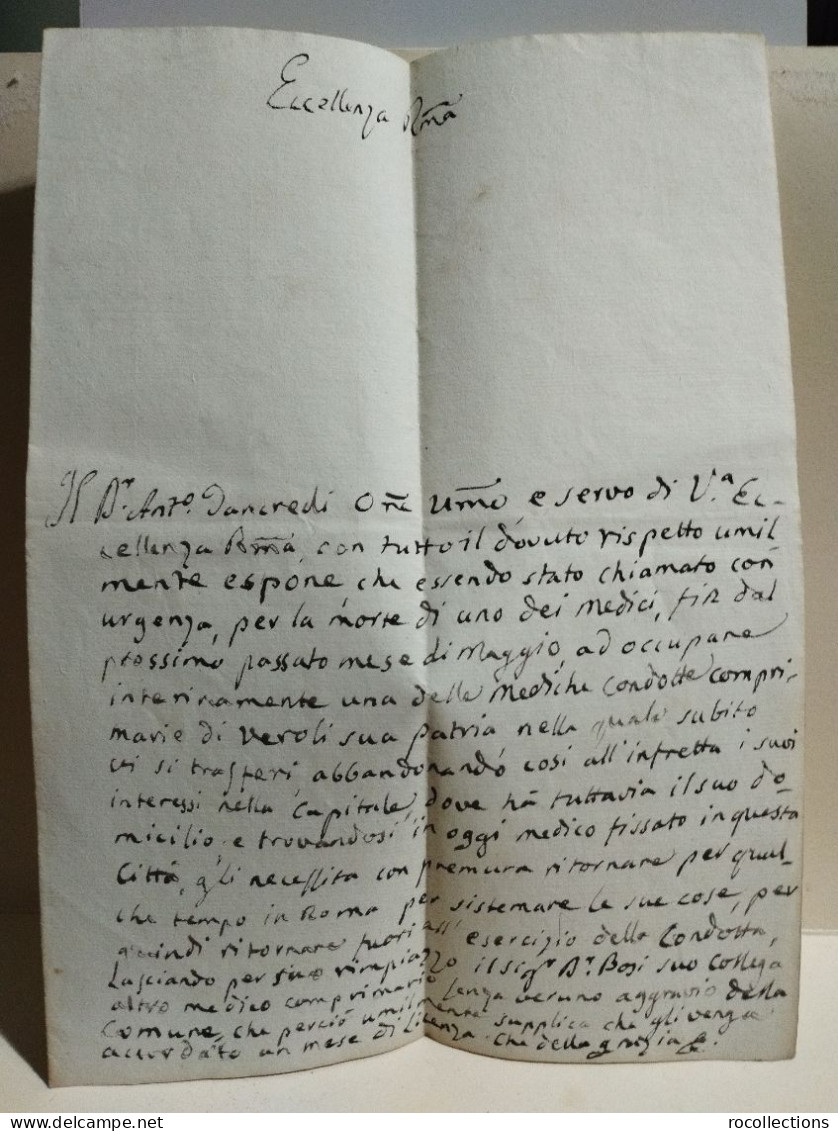 Eccellenza Rm̃a
Il Dr. Anto. Tancredi Orẽ Um̃o e servo di V.a Ec-
cellenza Rm̃a, con tutto il dovuto rispetto umil
mente espone, che essendo stato chiamato con
urgenza, per la morte di uno dei Medici, fin dal
prossimo passato mese di Maggio, ad occupare
interinamente una delle Mediche Condotte compri-
marie di Veroli sua Patria nella quale subito
vi si trasferì, abbandonando così all'infretta i suoi
interessi nella Capitale, dove ha tuttavia il suo do-
micilio, e trovandosi in oggi medico fissato in questa
Città, gli necessita con premura ritornare per qual-
che tempo in Roma per sistemare le sue cose, per
quindi ritornare all' esercizio della Condotta,
Lasciando per suo rimpiazzo il sigr Dr. Bosi suo Collega
altro medico comprimario senza veruno aggravio della
Comune, che perciò umilmente supplica che gli venga
accordato un mese di licenza. Che della grazia &.
www.delcampe.net
rocollections